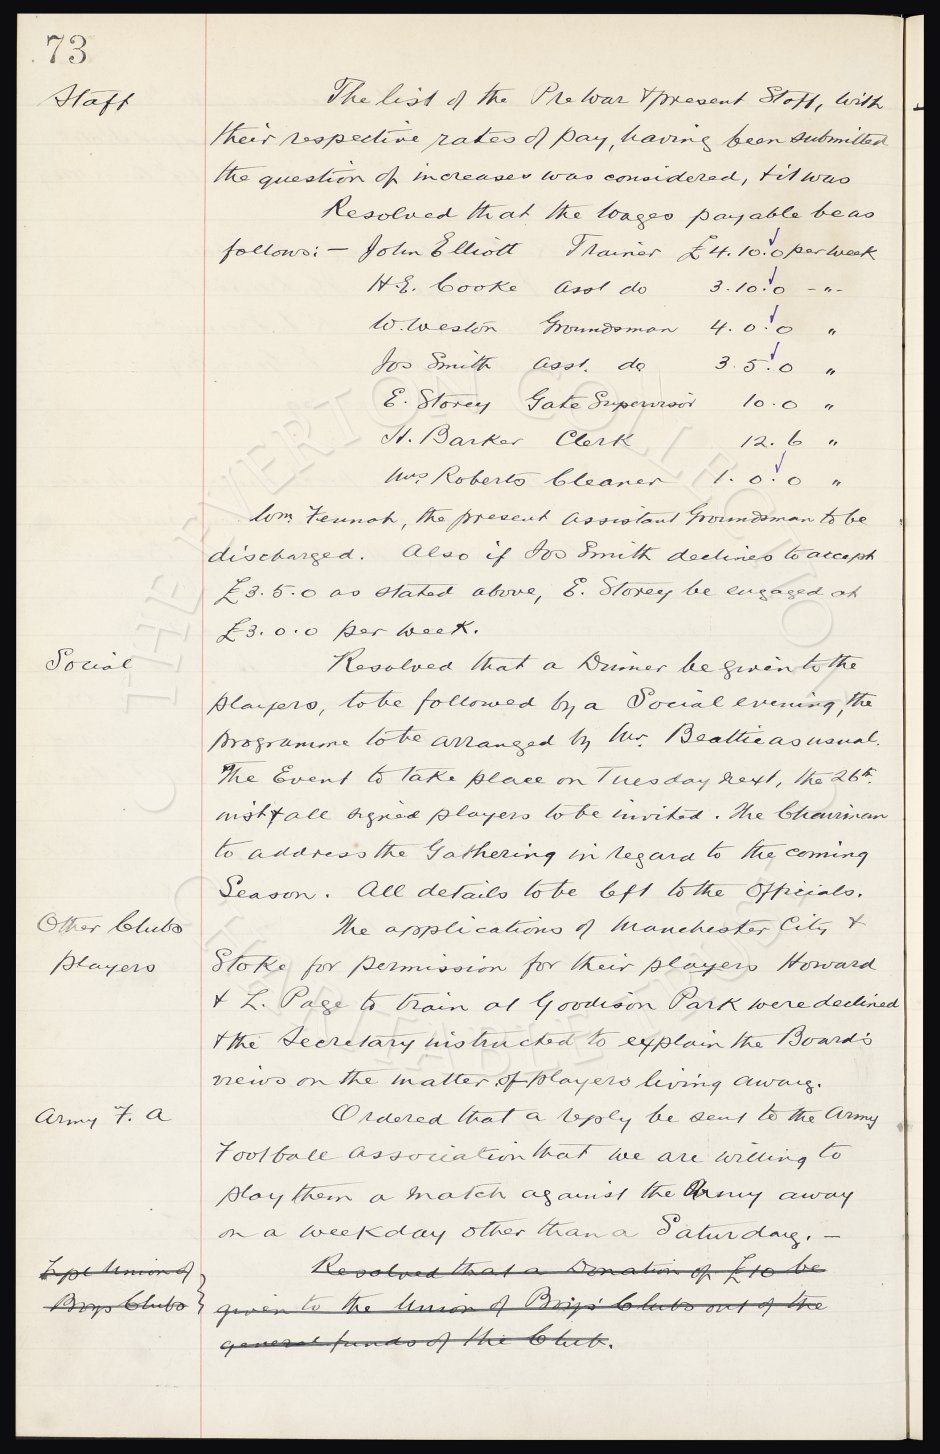 73
Staff
The list of the Pre War & present Staff, with
their respective rates of pay, having been submitted
the question of increases was considered, & it was
Resolved that the Wages payable be as
follows: — John Elliott Trainer £4.10.0 per week
H.E. Cooke Asst do 3.10.0 - " -
W. Weston Groundsman 4.0.0 "
Jos Smith Asst. do 3.5.0 "
E. Storey Gate Supervisor 10.0 "
H. Barker Clerk 12.6 "
Mrs. Roberts Cleaner 1.0.0 "
Wm. Fennah, the present Assistant Groundsman to be
discharged. Also if Jos Smith declines to accept
£3.5.0 as stated above, E. Storey be engaged at
£3.0.0 per week.
Social
Resolved that a Dinner be given to the
players, to be followed by a Social evening, the
programme to be arranged by Mr. Beattie as usual.
The Event to take place on Tuesday next, the 26th.
inst & all signed players to be invited. The Chairman
to address the Gathering in regard to the coming
Season. All details to be left to the Officials.
Other Clubs
players
The applications of Manchester City &
Stoke for permission for their players Howard
& L. Page to train at Goodison Park were declined
& the Secretary instructed to explain the Board's
views on the matter of players living away.
Army F. A
Ordered that a reply be sent to the Army
Football Association that we are willing to
play them a match against the Army away
on a weekday other than a Saturday. —
Lpl Union of
Boys Clubs
Resolved that a Donation of £10 be
given to the Union of Boys' Clubs out of the
general funds of the Club.
© THE EVERTON COLLECTION